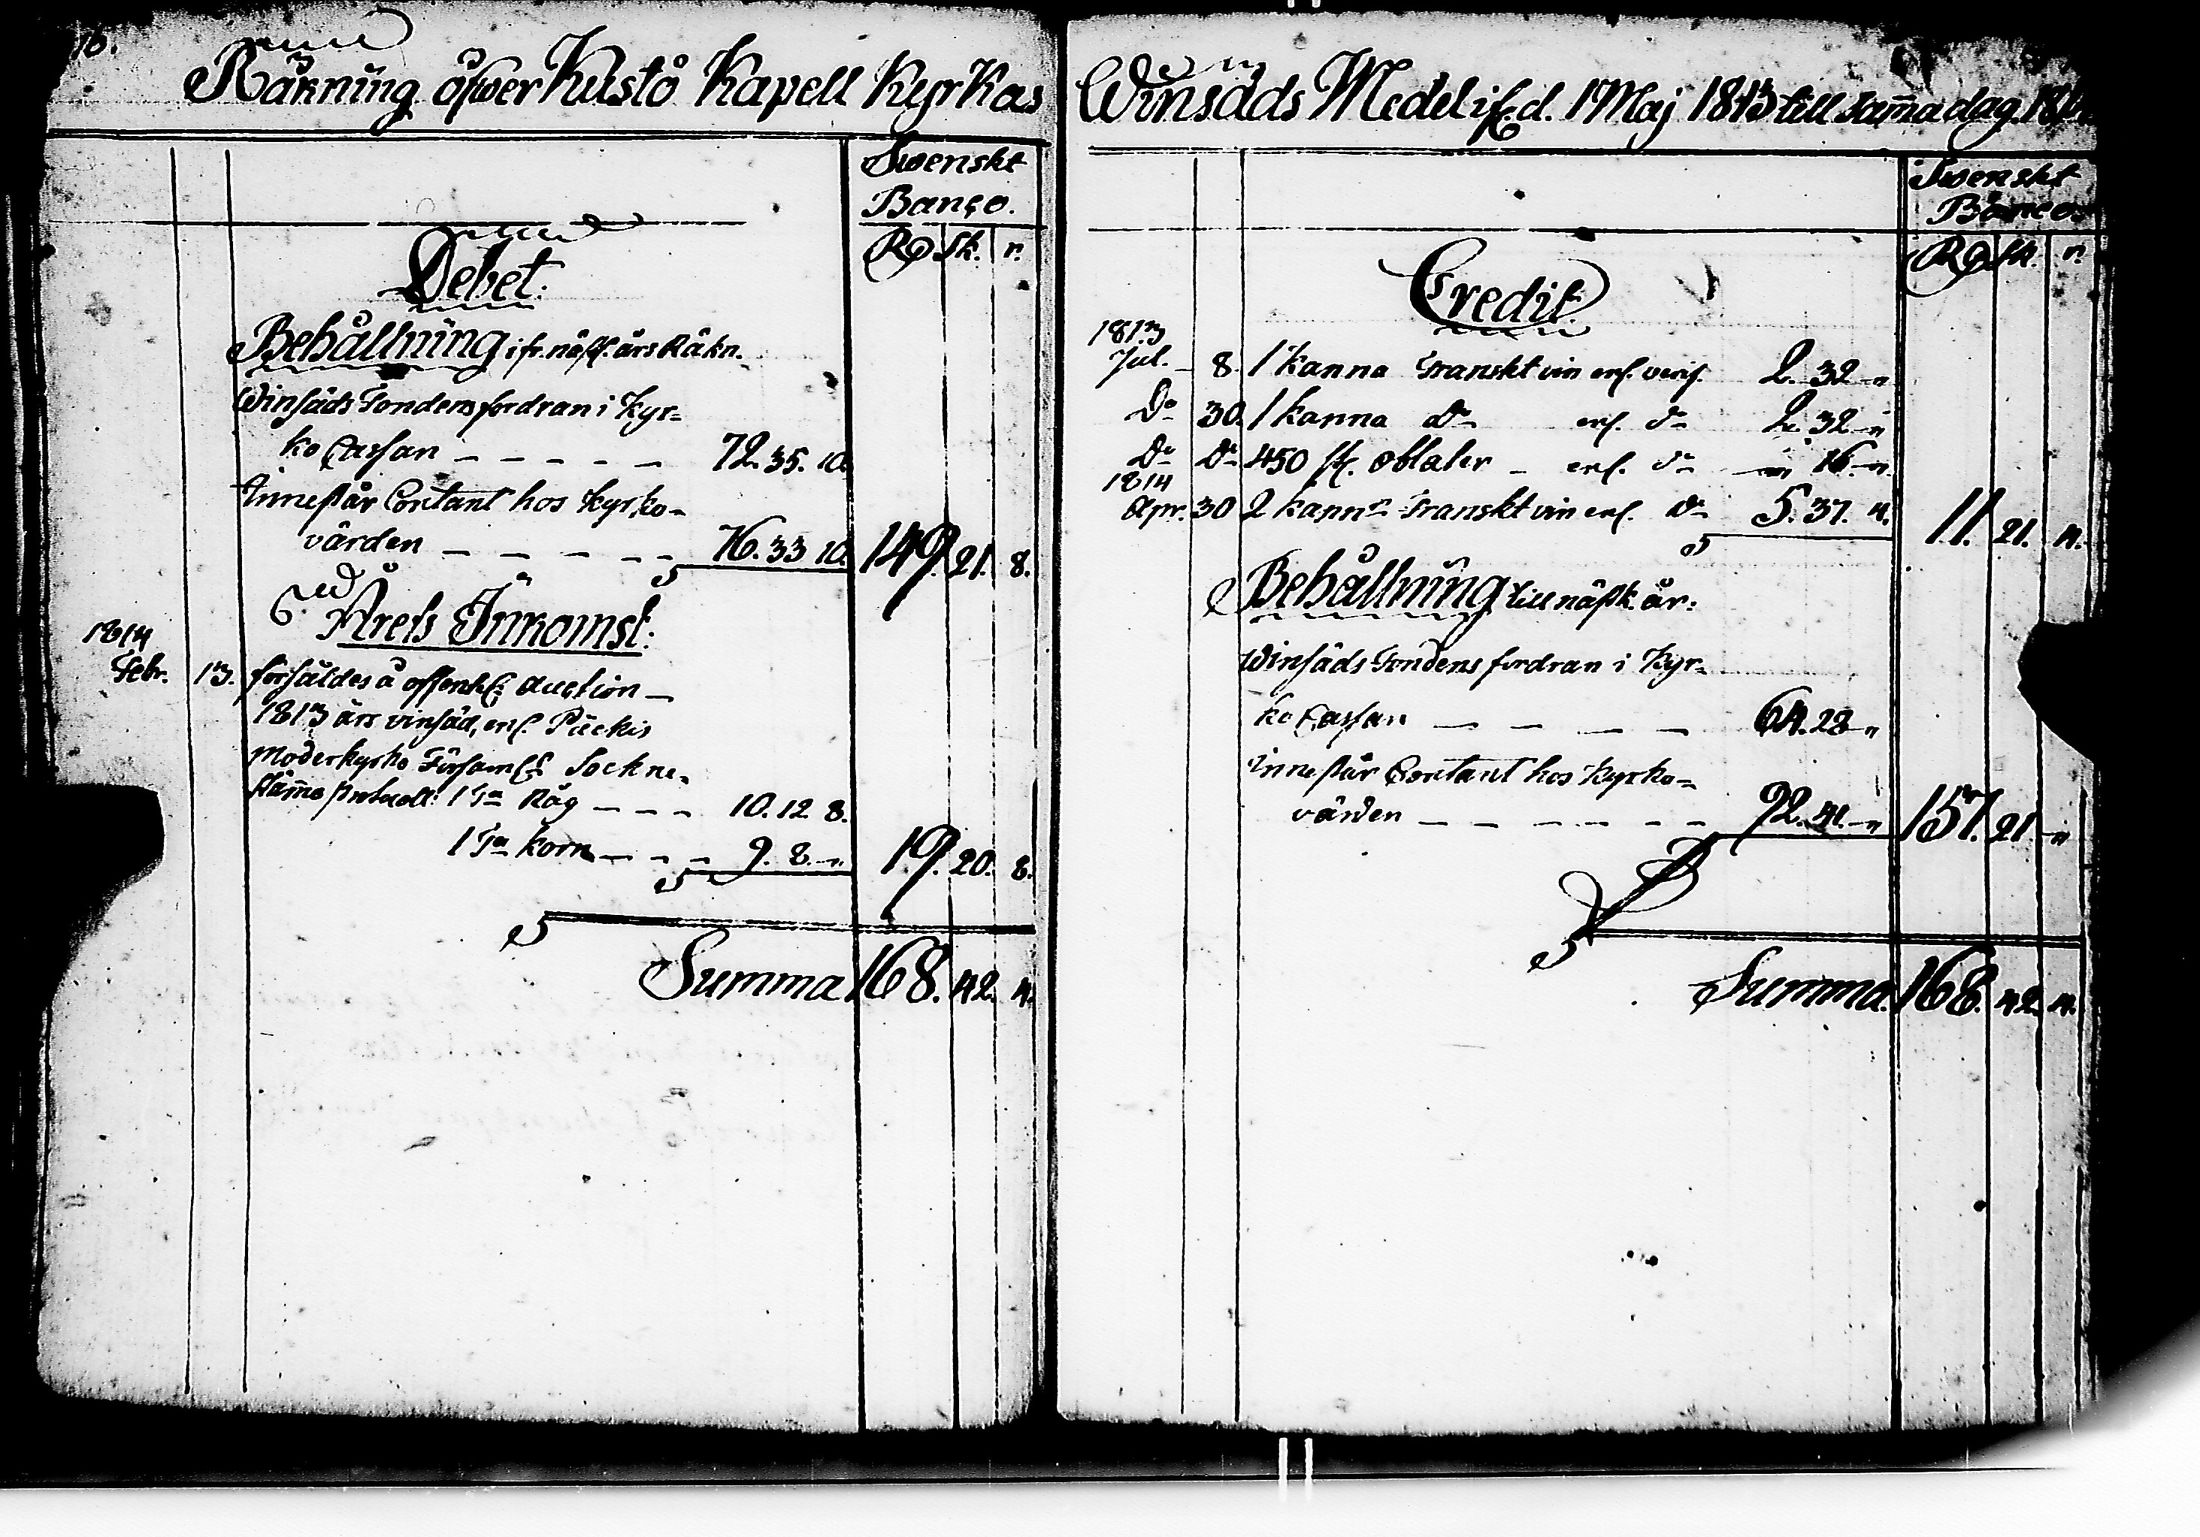 Räkning öfwer Kustö Kapell Kyrkas
Swenskt
Banco.
Rd Sk. r.
Debet:
Behållning ifr. näst. års Räkn.
Winsäds Fondens fordran i Kyr=
ko Cassan — — — — — 72. 35. 10.
Innestår Contant hos Kyrko=
värden — — — — — 76. 33 10. 149. 21. 8.
Årets Inkomst:
1814
Febr. 13. försåldes å offentl: auction —
1813 års vinsäd, enl. Piikkis
Moderkyrko Församl:s Sockne=
stämo protocoll: 1 Ta Råg — — — 10. 12 8.
1 Ta Korn — — — 9. 8. " 19. 20. 8.
Summa 168. 42. 4.
Winsäds Medel ifr. d. 1 Maj 1813 till samma dag
Swenskt
Banco.
Rd Sk. r.
Credit.
1813
Jul. 8. 1 kanna Franskt vin enl. verif. 2. 32 "
Do 30. 1 kanna do enl. do 2. 32 "
Do Do 450 st. oblater — enl. do " 16 "
1814
Apr. 30 2 kannr Franskt vin enl. do 5. 37. 4. 11. 21. 4.
Behållning till näst. år:
Winsäds Fondens fordran i Kyr=
ko Cassan — — — — — 64. 28 "
Innestår Contant hos Kyrko=
värden — — — — — — 92. 41. " 157. 21. "
Summa 168. 42. 4.